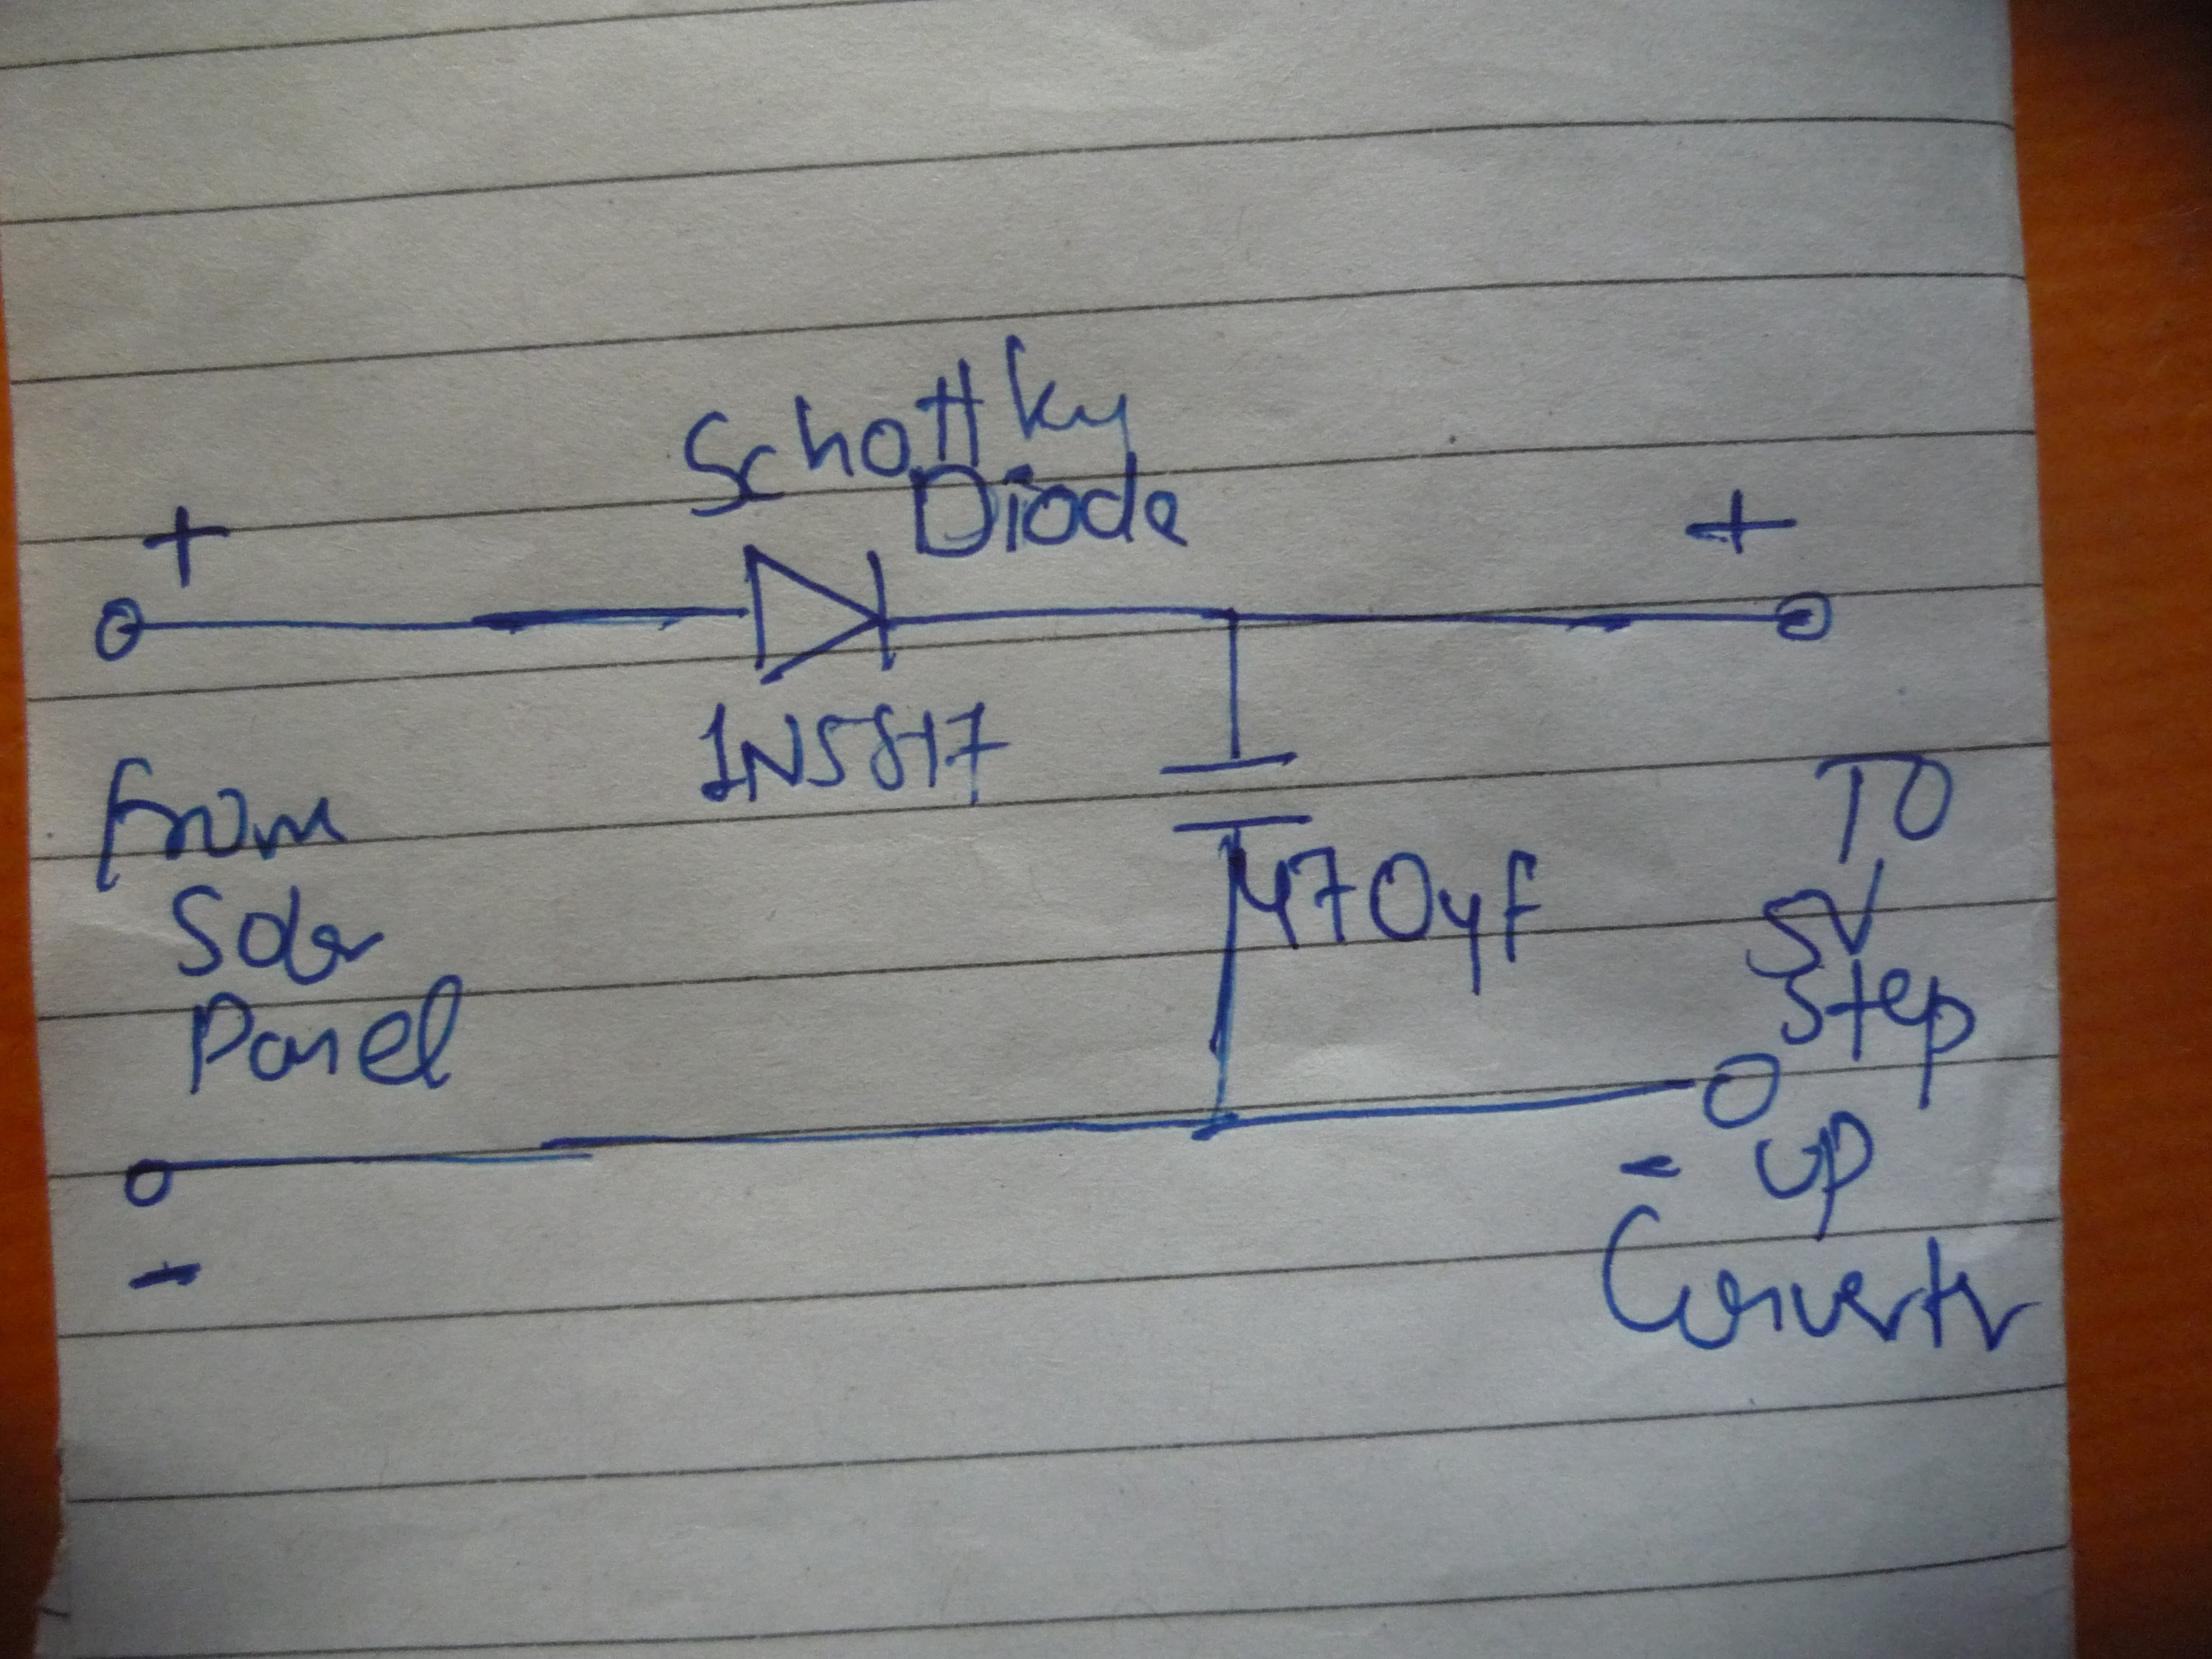 Schottky
Diode
+
+
1N5817
From
Solar
Panel
470µf
To
5V
Step
up
Converter
-
-